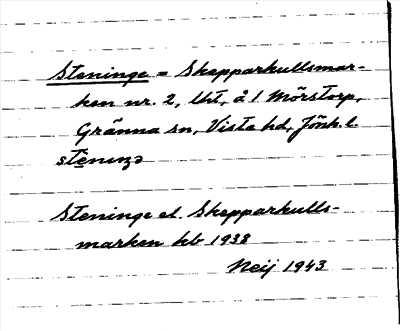 Steninge = Skepparkullsmar-
ken nr. 2, lht, å 1 Mörstorp,
Gränna sn, Vista hd, Jönk. l.
stèniŋə
Steninge el. Skepparkulls-
marken kb 1938
Neij 1943